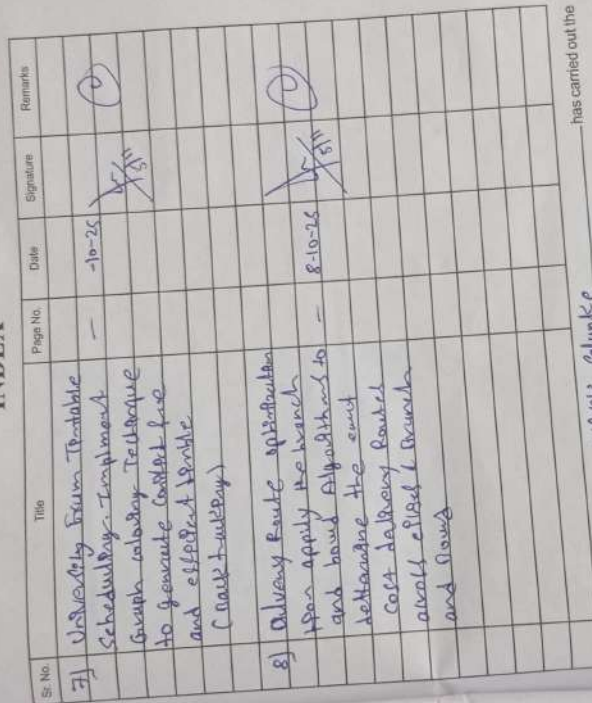 INDEX
Sr. No. Title Page No. Date Signature Remarks
7] University Exam Timtable — -10-25
Scheduling. Implment
Graph coloring Technique
to generate conflict free
and efficient timble
(Backtracking)
8] Delivery Route optimization
apply the branch
and bound Algorithms to — 8-10-25
determine the
cost delivery Routes
across cities
and
has carried out the